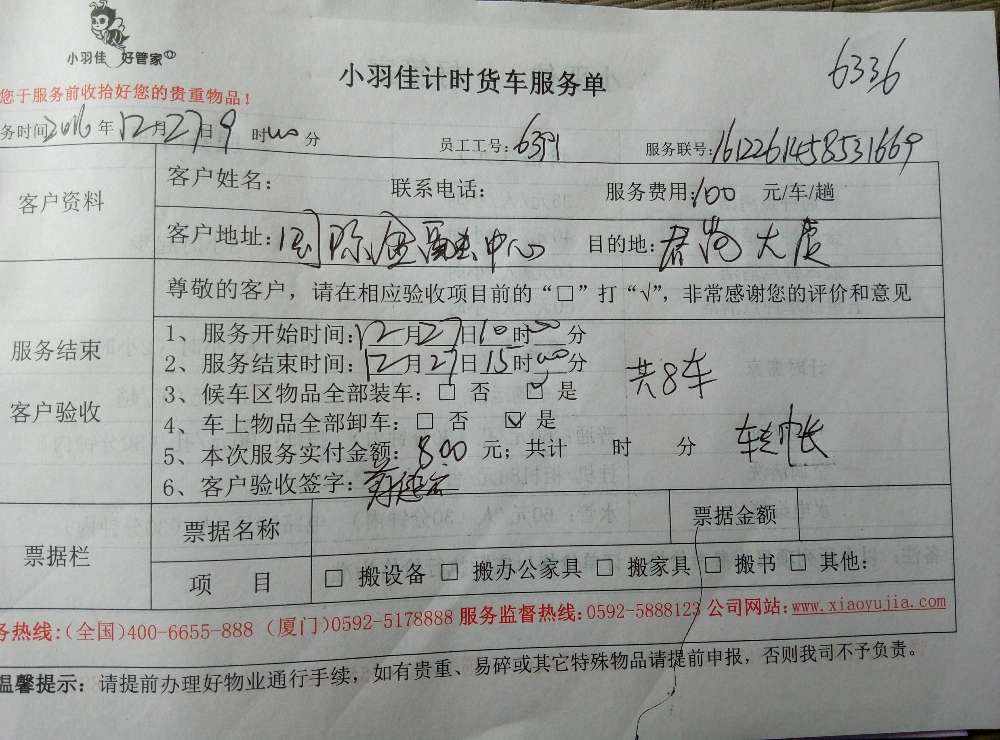 小羽佳 好管家
小羽佳计时货车服务单
6336
您于服务前收拾好您的贵重物品！
务时间2016年12月27日9时00分 员工工号: 服务联号:1612261458531669
客户资料
客户姓名： 联系电话： 服务费用:100 元/车/趟
客户地址:国际金融中心 目的地: 大厦
尊敬的客户，请在相应验收项目前的“□”打“√”，非常感谢您的评价和意见
服务结束
客户验收
1、服务开始时间:12月27日10时00分
2、服务结束时间:12月27日15时00分
3、候车区物品全部装车：□ 否 ☑ 是
共8车
4、车上物品全部卸车：□ 否 ☑ 是
5、本次服务实付金额:800元；共计 时 分
6、客户验收签字:
票据栏
票据名称 票据金额
项 目 □ 搬设备 □ 搬办公家具 □ 搬家具 □ 搬书 □ 其他:
务热线:(全国)400-6655-888 (厦门)0592-5178888 服务监督热线:0592-5888123 公司网站:www.xiaoyujia.com
温馨提示：请提前办理好物业通行手续，如有贵重、易碎或其它特殊物品请提前申报，否则我司不予负责。